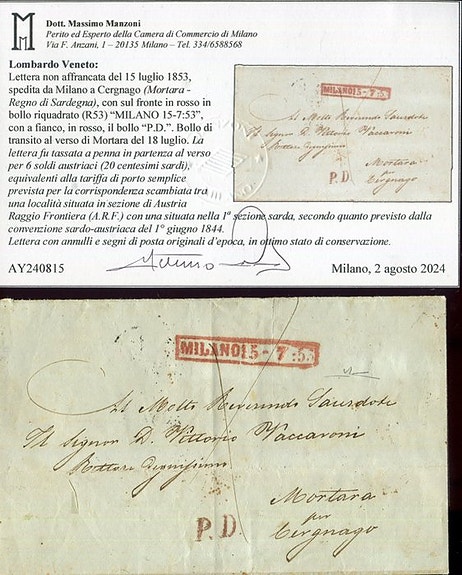 Dott. Massimo Manzoni
Perito ed Esperto della Camera di Commercio di Milano
Via F. Anzani, 1 – 20135 Milano – Tel. 334/6588568
Lombardo Veneto:
Lettera non affrancata del 15 luglio 1853,
spedita da Milano a Cergnago (Mortara -
Regno di Sardegna), con sul fronte in rosso in
bollo riquadrato (R53) “MILANO 15-7:53”,
con a fianco, in rosso, il bollo “P.D.”. Bollo di
transito al verso di Mortara del 18 luglio. La
lettera fu tassata a penna in partenza al verso
per 6 soldi austriaci (20 centesimi sardi),
equivalenti alla tariffa di porto semplice
prevista per la corrispondenza scambiata tra
una località situata in sezione di Austria
Raggio Frontiera (A.R.F.) con una situata nella 1° sezione sarda, secondo quanto previsto dalla
convenzione sardo-austriaca del 1° giugno 1844.
Lettera con annulli e segni di posta originali d’epoca, in ottimo stato di conservazione.
AY240815
Milano, 2 agosto 2024
MILANO 15-7:53
Al Molto Reverendo Sacerdote
Il Signor D. Vittorio Vaccaroni
Rettore Degnissimo
Mortara
per
Cergnago
P.D.
MILANO 15-7:53
Al Molto Reverendo Sacerdote
Il Signor D. Vittorio Vaccaroni
Rettore Degnissimo
Mortara
per
Cergnago
P.D.